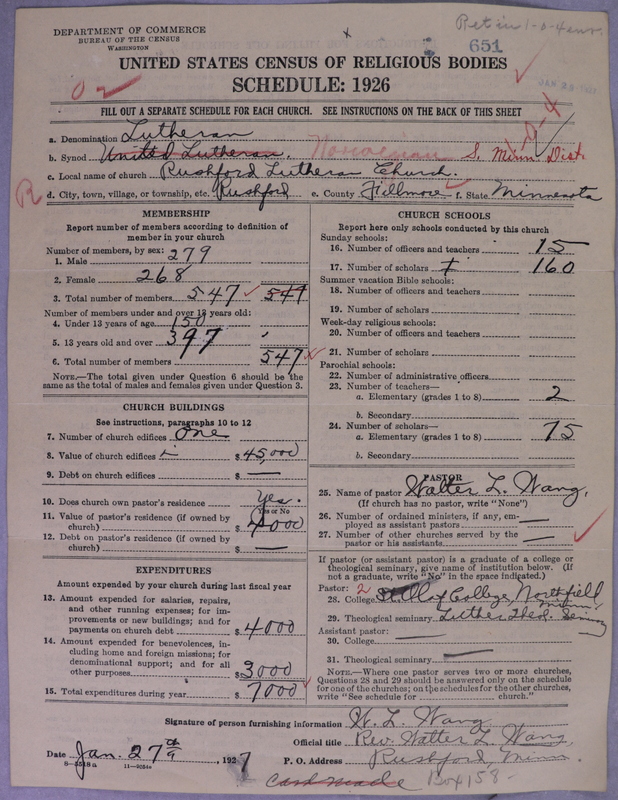 DEPARTMENT OF COMMERCE
BUREAU OF THE CENSUS
WASHINGTON
651
UNITED STATES CENSUS OF RELIGIOUS BODIES
SCHEDULE: 1926
FILL OUT A SEPARATE SCHEDULE FOR EACH CHURCH. SEE INSTRUCTIONS ON THE BACK OF THIS SHEET
a. Denomination Lutheran
b. Synod United Lutheran. Norwegian S. Minn Dist.
c. Local name of church Rushford Lutheran Church.
R d. City, town, village, or township, etc. Rushford e. County Fillmore f. State Minnesota
MEMBERSHIP
Report number of members according to definition of member in your church
Number of members, by sex:
1. Male 279
2. Female 268
3. Total number of members 547 547
Number of members under and over 13 years old:
4. Under 13 years of age 150
5. 13 years old and over 397
6. Total number of members 547
NOTE.—The total given under Question 6 should be the same as the total of males and females given under Question 3.
CHURCH BUILDINGS
See instructions, paragraphs 10 to 12
7. Number of church edifices One
8. Value of church edifices $ 45,000
9. Debt on church edifices $ —
10. Does church own pastor's residence Yes.
Yes or No
11. Value of pastor's residence (if owned by church) $ 4000
12. Debt on pastor's residence (if owned by church) $ —
EXPENDITURES
Amount expended by your church during last fiscal year
13. Amount expended for salaries, repairs, and other running expenses; for improvements or new buildings; and for payments on church debt $ 4000
14. Amount expended for benevolences, including home and foreign missions; for denominational support; and for all other purposes $ 3000
15. Total expenditures during year $ 7000
CHURCH SCHOOLS
Report here only schools conducted by this church
Sunday schools:
16. Number of officers and teachers 15
17. Number of scholars 160
Summer vacation Bible schools:
18. Number of officers and teachers
19. Number of scholars
Week-day religious schools:
20. Number of officers and teachers
21. Number of scholars
Parochial schools:
22. Number of administrative officers
23. Number of teachers—
a. Elementary (grades 1 to 8) 2
b. Secondary
24. Number of scholars—
a. Elementary (grades 1 to 8) 75
b. Secondary
PASTOR
25. Name of pastor Walter L. Wang,
(If church has no pastor, write "None")
26. Number of ordained ministers, if any, employed as assistant pastors —
27. Number of other churches served by the pastor or his assistants —
If pastor (or assistant pastor) is a graduate of a college or theological seminary, give name of institution below. (If not a graduate, write "No" in the space indicated.)
Pastor: 2
28. College St. Olaf College, Northfield Minn.
29. Theological seminary Luther Theol. Seminary
Assistant pastor:
30. College
31. Theological seminary —
NOTE.—Where one pastor serves two or more churches, Questions 28 and 29 should be answered only on the schedule for one of the churches; on the schedules for the other churches, write "See schedule for church."
Signature of person furnishing information W. L. Wang
Official title Rev. Walter L. Wang,
Date Jan. 27th, 1927 P. O. Address Rushford, Minn.
8—5518a 11—9054a
Card Made Box 158-